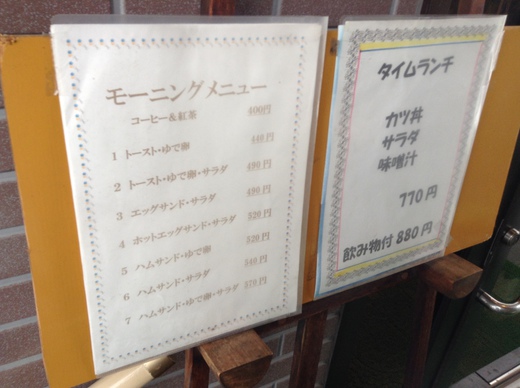 モーニングメニュー
コーヒー&紅茶 400円
1 トースト・ゆで卵 440円
2 トースト・ゆで卵・サラダ 490円
3 エッグサンド・サラダ 490円
4 ホットエッグサンド・サラダ 520円
5 ハムサンド・ゆで卵 520円
6 ハムサンド・サラダ 540円
7 ハムサンド・ゆで卵・サラダ 570円
タイムランチ
カツ丼
サラダ
味噌汁
770円
飲み物付 880円